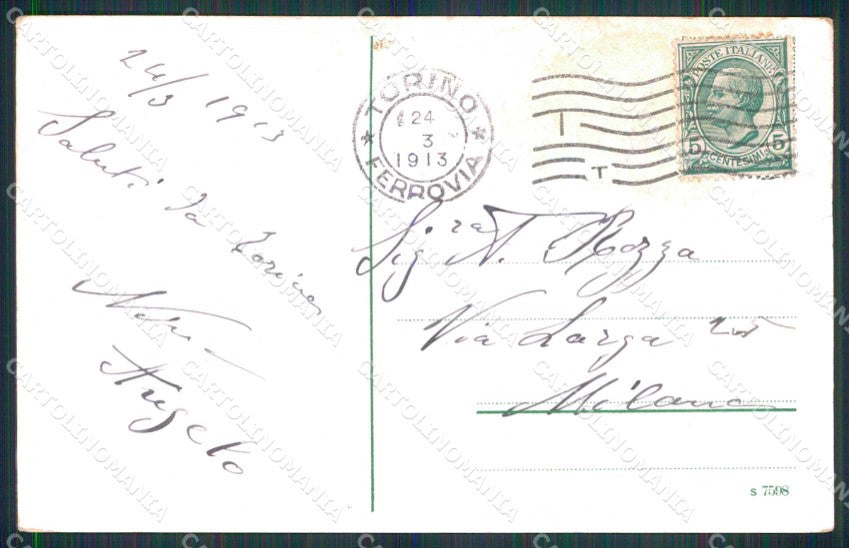 24/3 1913
Saluti da Torino
Angelo
TORINO
24
3
1913
FERROVIA
T
POSTE ITALIANE
5 5
CENTESIMI
Sig.ra A. Rozza
Via Larga
Milano
s 7598
CARTOLINOMANIA